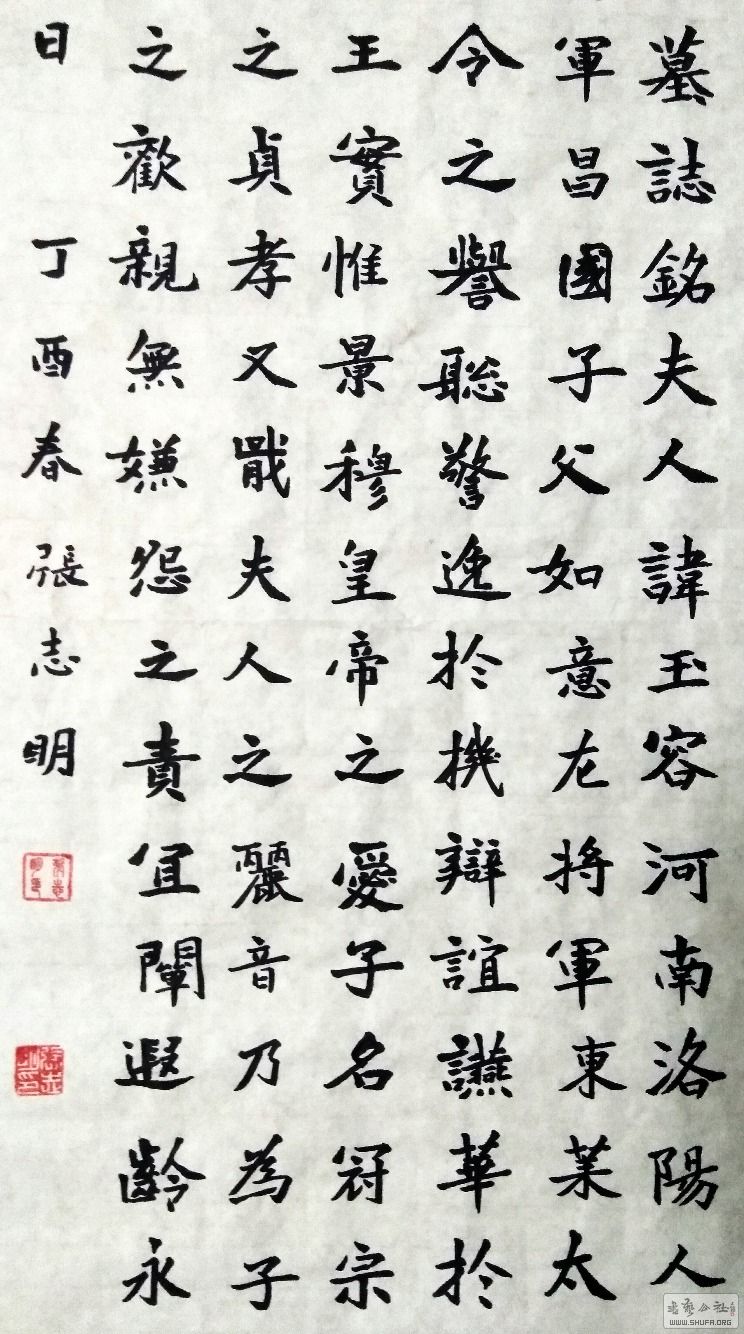 墓誌銘夫人諱玉容河南洛陽人
軍昌國子父如意左將軍東萊太
令之譽聡警逸於機辯誼讌華於
王實惟景穆皇帝之愛子名冠宗
之貞孝又戩夫人之麗音乃為子
之歡親無嫌怨之責宜闡遐齡永
日 丁酉春張志明
書藝公社
WWW.SHUFA.ORG